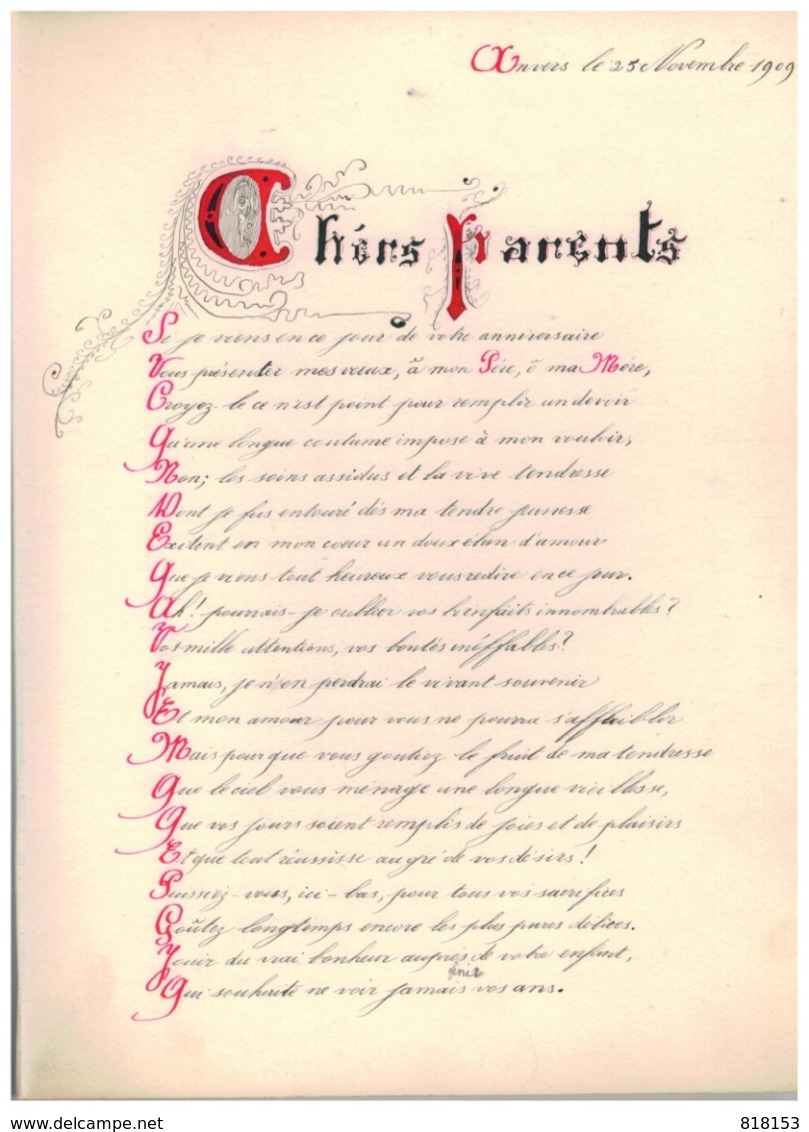 Anvers le 25 Novembre 1909
Chérs Parents
Si je viens en ce jour de votre anniversaire
Vous présenter mes vœux, ô mon Père, ô ma Mère,
Croyez-le ce n'est point pour remplir un devoir
Qu'une longue coutume impose à mon vouloir;
Non; les soins assidus et la vive tendresse
Dont je fus entouré dés ma tendre jeunesse
Exitent en mon coeur un doux élan d'amour
Que je viens tout heureux vous redire en ce jour.
Ah! pourrais-je oublier vos bienfaits innombrables?
Vos mille attentions, vos bontés inéffables?
Jamais, je n'en perdrai le vivant souvenir
Et mon amour pour vous ne pourra s'affaiblir
Mais pour que vous goutiez le fruit de ma tendresse
Que le ciel vous ménage une longue vieillesse,
Que vos jours soient remplis de joies et de plaisirs
Et que tout réussisse au gré de vos désirs!
Puissiez-vous, ici-bas, pour tous vos sacrifices
Goûtez longtemps encore les plus pures délices.
Jouir du vrai bonheur auprès de votre enfant,
finir
Qui souhaite ne voir jamais vos ans.
delcampe.net
818153